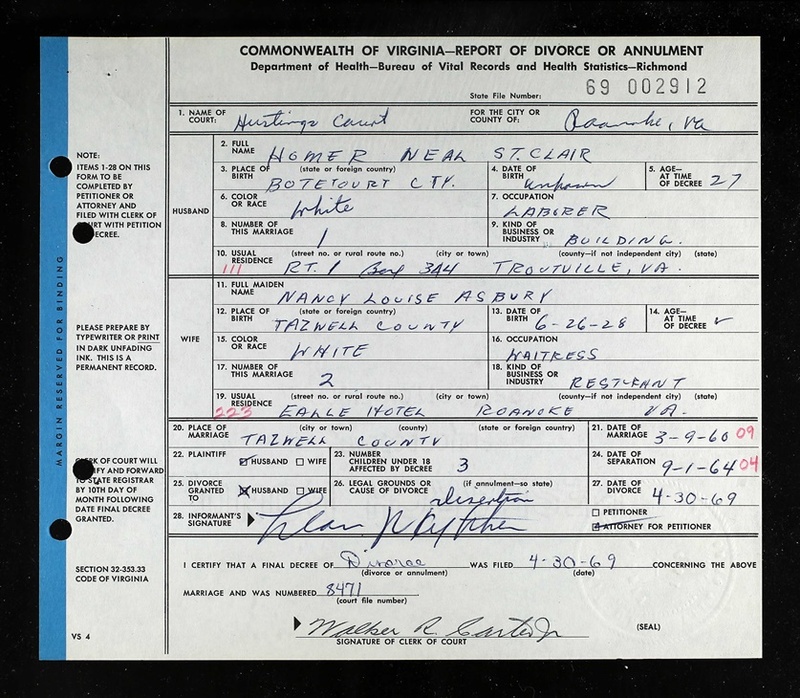 COMMONWEALTH OF VIRGINIA—REPORT OF DIVORCE OR ANNULMENT
Department of Health—Bureau of Vital Records and Health Statistics—Richmond
State File Number: 69 002912
1. NAME OF COURT: Hustings Court FOR THE CITY OR COUNTY OF: Roanoke, Va
NOTE:
ITEMS 1-28 ON THIS
FORM TO BE
COMPLETED BY
PETITIONER OR
ATTORNEY AND
FILED WITH CLERK OF
COURT WITH PETITION
DECREE.
PLEASE PREPARE BY
TYPEWRITER OR PRINT
IN DARK UNFADING
INK. THIS IS A
PERMANENT RECORD.
CLERK OF COURT WILL
AND FORWARD
TO STATE REGISTRAR
BY 10TH DAY OF
MONTH FOLLOWING
DATE FINAL DECREE
GRANTED.
SECTION 32-353.33
CODE OF VIRGINIA
VS 4
MARGIN RESERVED FOR BINDING
HUSBAND
2. FULL NAME HOMER NEAL ST. CLAIR
3. PLACE OF BIRTH (state or foreign country) BOTETOURT CTY. 4. DATE OF BIRTH unknown 5. AGE—AT TIME OF DECREE 27
6. COLOR OR RACE White 7. OCCUPATION LABORER
8. NUMBER OF THIS MARRIAGE 1 9. KIND OF BUSINESS OR INDUSTRY BUILDING.
10. USUAL RESIDENCE (street no. or rural route no.) (city or town) (county—if not independent city) (state)
111 RT. 1 Box 344 TROUTVILLE, VA.
WIFE
11. FULL MAIDEN NAME NANCY LOUISE ASBURY
12. PLACE OF BIRTH (state or foreign country) TAZWELL COUNTY 13. DATE OF BIRTH 6-26-28 14. AGE—AT TIME OF DECREE ✓
15. COLOR OR RACE WHITE 16. OCCUPATION WAITRESS
17. NUMBER OF THIS MARRIAGE 2 18. KIND OF BUSINESS OR INDUSTRY
19. USUAL RESIDENCE (street no. or rural route no.) (city or town) (county—if not independent city) (state)
223 HOTEL ROANOKE VA.
20. PLACE OF MARRIAGE (city or town) (county) (state or foreign country) TAZWELL COUNTY 21. DATE OF MARRIAGE 3-9-60 09
22. PLAINTIFF ☒ HUSBAND ☐ WIFE 23. NUMBER CHILDREN UNDER 18 AFFECTED BY DECREE 3 24. DATE OF SEPARATION 9-1-64 04
25. DIVORCE GRANTED TO ☒ HUSBAND ☐ WIFE 26. LEGAL GROUNDS OR CAUSE OF DIVORCE (if annulment—so state) desertion 27. DATE OF DIVORCE 4-30-69
28. INFORMANT'S SIGNATURE ☐ PETITIONER
☒ ATTORNEY FOR PETITIONER
I CERTIFY THAT A FINAL DECREE OF Divorce WAS FILED 4-30-69 CONCERNING THE ABOVE
(divorce or annulment) (date)
MARRIAGE AND WAS NUMBERED 8471
(court file number)
Walker R. Carter Jr
SIGNATURE OF CLERK OF COURT (SEAL)